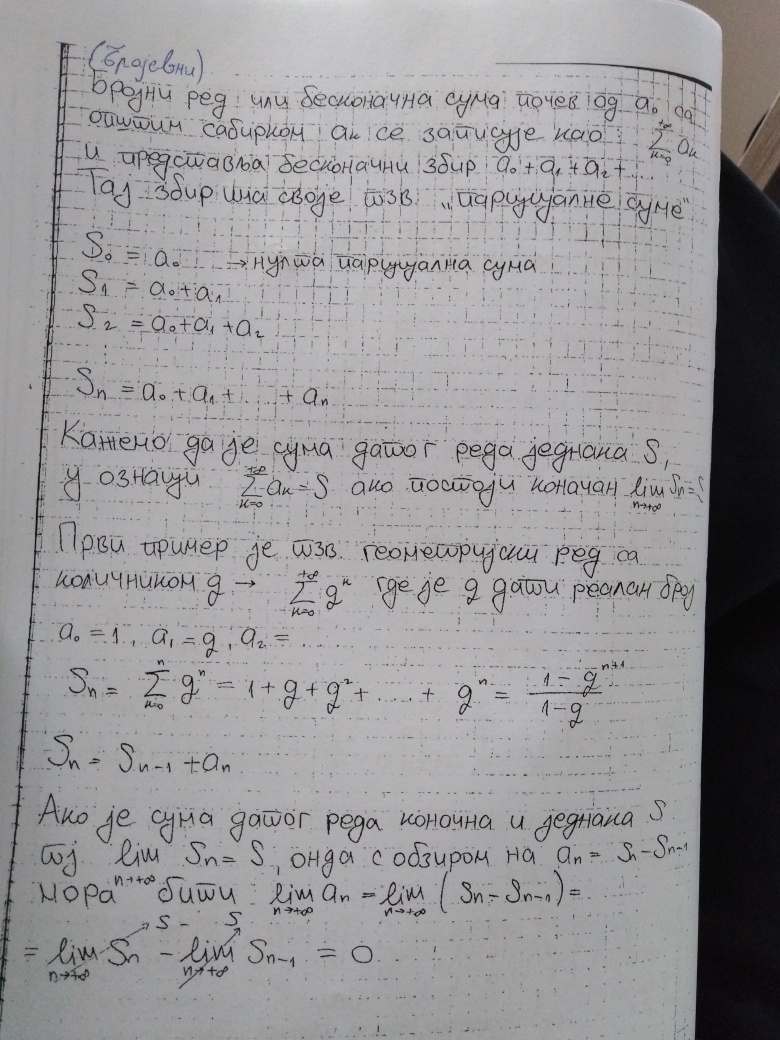 (Бројевни)
Бројни ред или бесконачна сума почев од a₀ са
општим сабирком aₖ се записује као : \sum_{k=0}^{+∞} aₖ
и представља бесконачни збир a₀+a₁+a₂+...
Тај збир има своје тзв. „парцијалне суме"
S₀ = a₀ → нулта парцијална сума
S₁ = a₀+a₁
S₂ = a₀+a₁+a₂
Sₙ = a₀+a₁+...+aₙ
Кажемо да је сума датог реда једнака S,
у ознаци \sum_{k=0}^{+∞} aₖ=S ако постоји коначан \lim_{n→+∞} Sₙ=S
Први пример је тзв. геометријски ред са
количником g → \sum_{k=0}^{+∞} g^k где је g дати реалан број
a₀=1, a₁=g, a₂=...
Sₙ = \sum_{k=0}^{n} g^n = 1+g+g²+....+ g^n = \frac{1-g^{n+1}}{1-g}
Sₙ = Sₙ₋₁ +aₙ
Ако је сума датог реда коначна и једнака S
тј \lim_{n→+∞} Sₙ=S, онда с обзиром на aₙ= Sₙ-Sₙ₋₁
мора бити \lim_{n→+∞} aₙ = \lim_{n→+∞} (Sₙ-Sₙ₋₁)=
S - S
= \lim_{n→+∞} Sₙ - \lim_{n→+∞} Sₙ₋₁ = 0